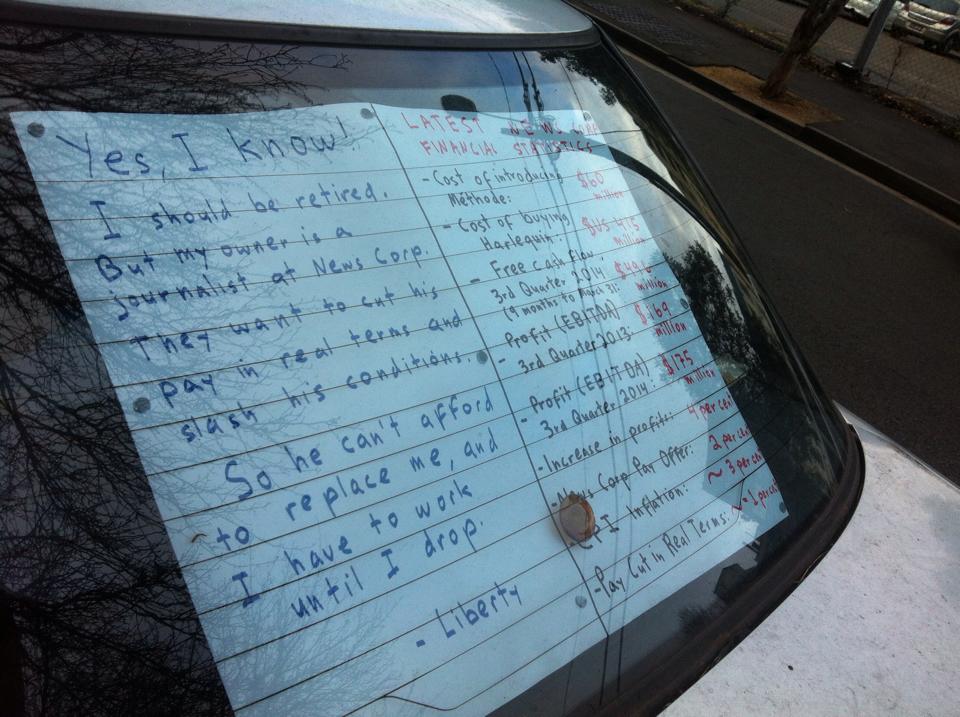 Yes, I know!
I should be retired.
But my owner is a
journalist at News Corp.
They want to cut his
pay in real terms and
slash his conditions.
So he can't afford
to replace me, and
I have to work
until I drop.
- Liberty
LATEST NEWS CORP
FINANCIAL STATISTICS
- Cost of introducing $60
Méthode: million
- Cost of buying $US 415
Harlequin: million
- Free cash flow
3rd Quarter 2014 $496
(9 months to March 31): million
- Profit (EBITDA) $169
3rd Quarter 2013: million
- Profit (EBITDA) $175
3rd Quarter 2014: million
- Increase in profits: 4 per cent
- News Corp Pay Offer: 2 per cent
- CPI Inflation: ~ 3 per cent
- Pay Cut in Real Terms: ~ -1 per cent